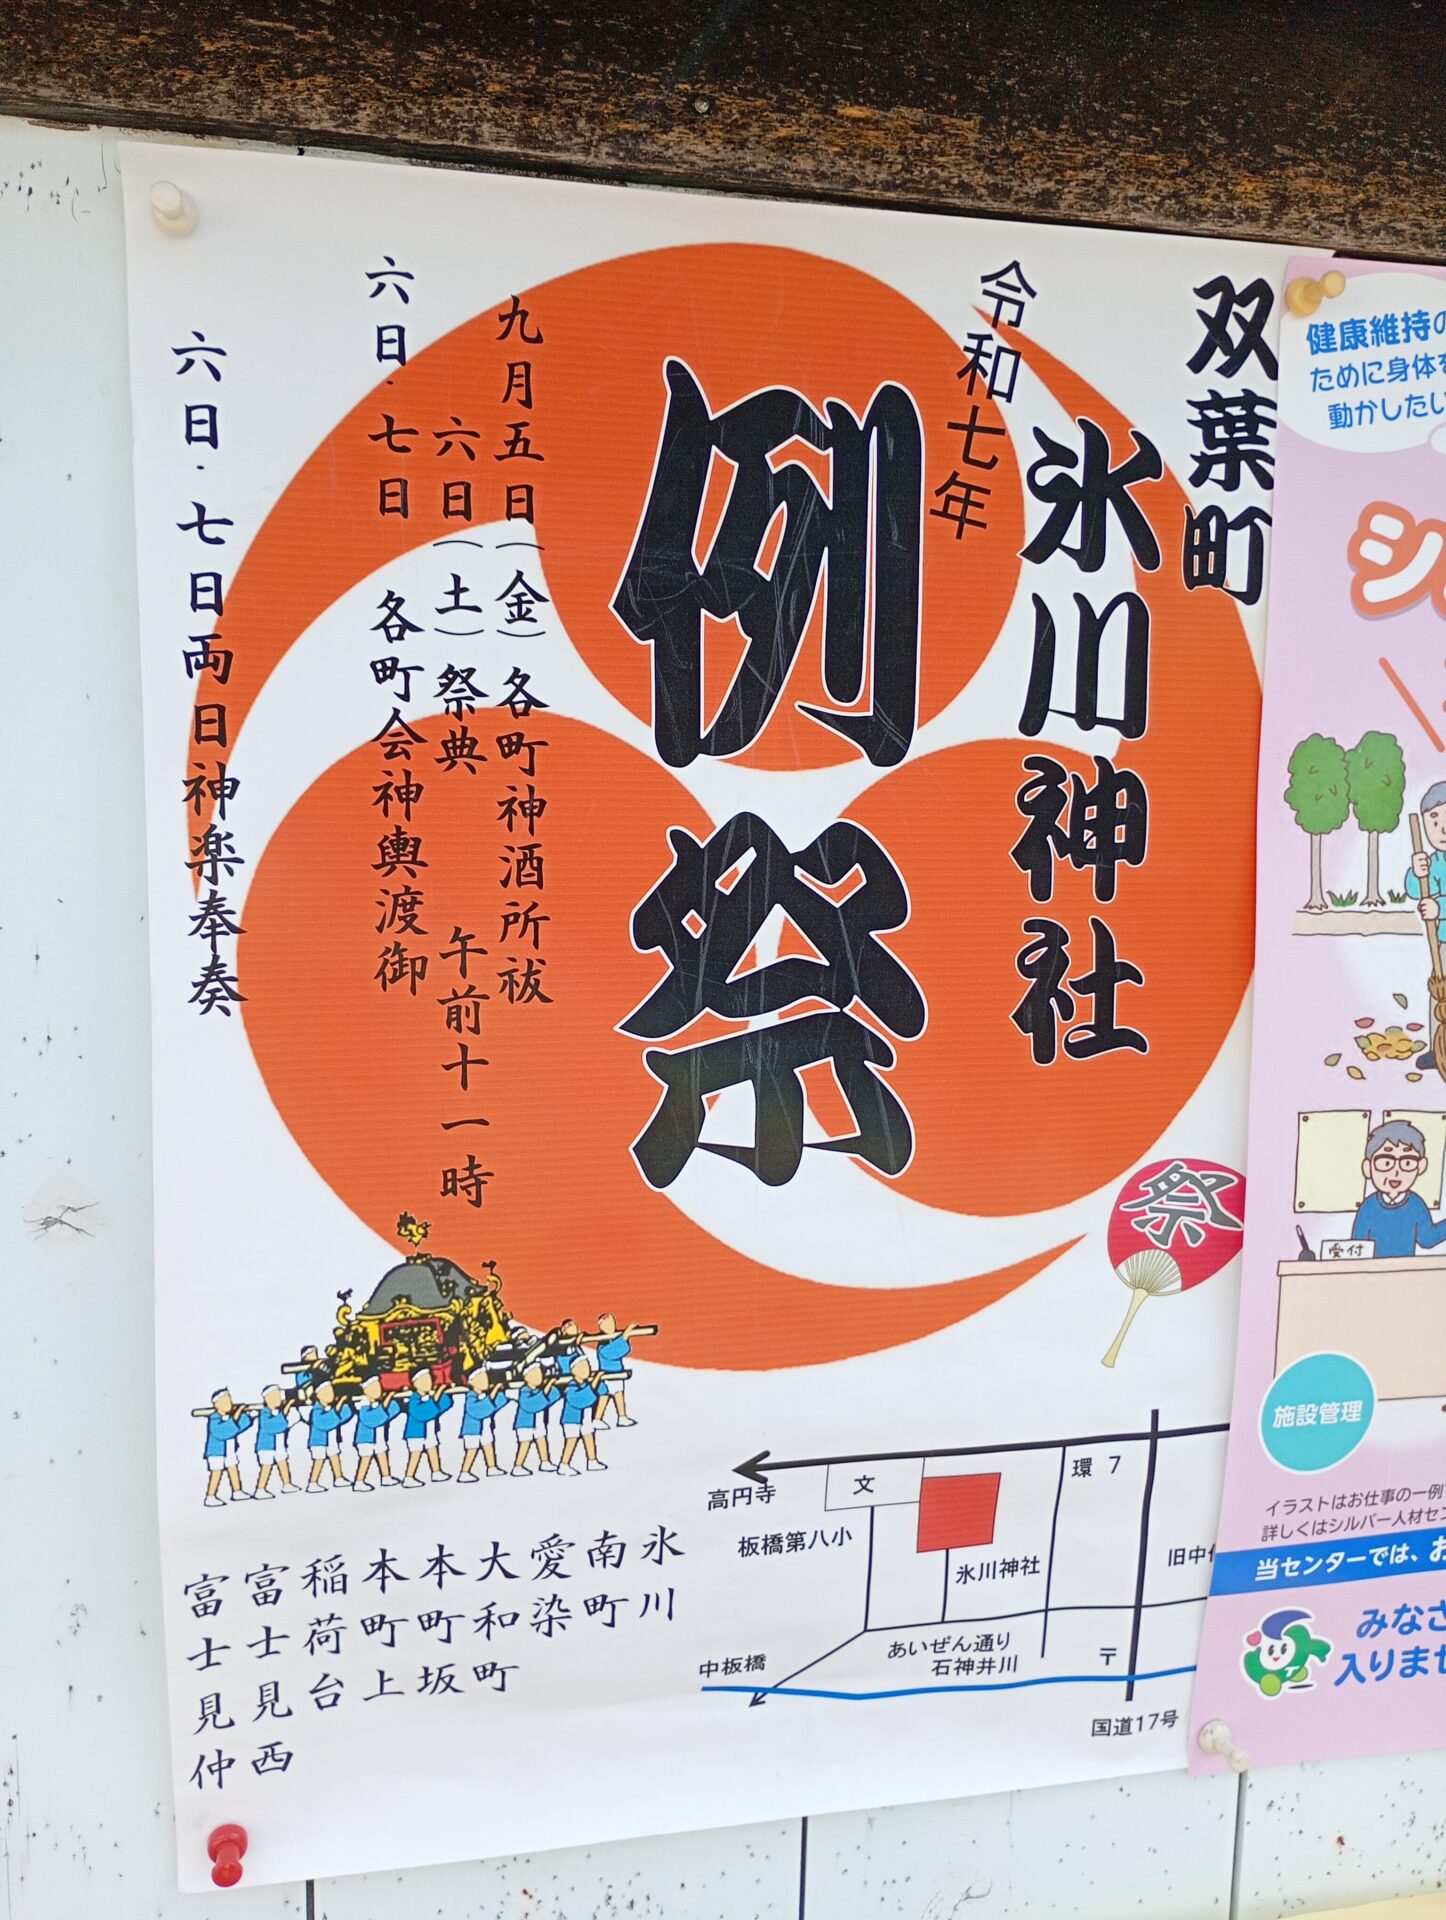 双葉町
氷川神社
令和七年
例祭
九月五日(金)各町神酒所祓
六日(土)祭典 午前十一時
六日・七日 各町会神輿渡御
六日・七日両日神楽奉奏
祭
氷川
南町
愛染
大和町
本町坂
本町上
稲荷台
富士見西
富士見仲
環 7
文
高円寺
板橋第八小
氷川神社
旧中
あいぜん通り
石神井川
中板橋
〒
国道17号
健康維持の
ために身体を
動かしたい
シ
受付
施設管理
イラストはお仕事の一例
詳しくはシルバー人材セン
当センターでは、お
みなさ
入りませ